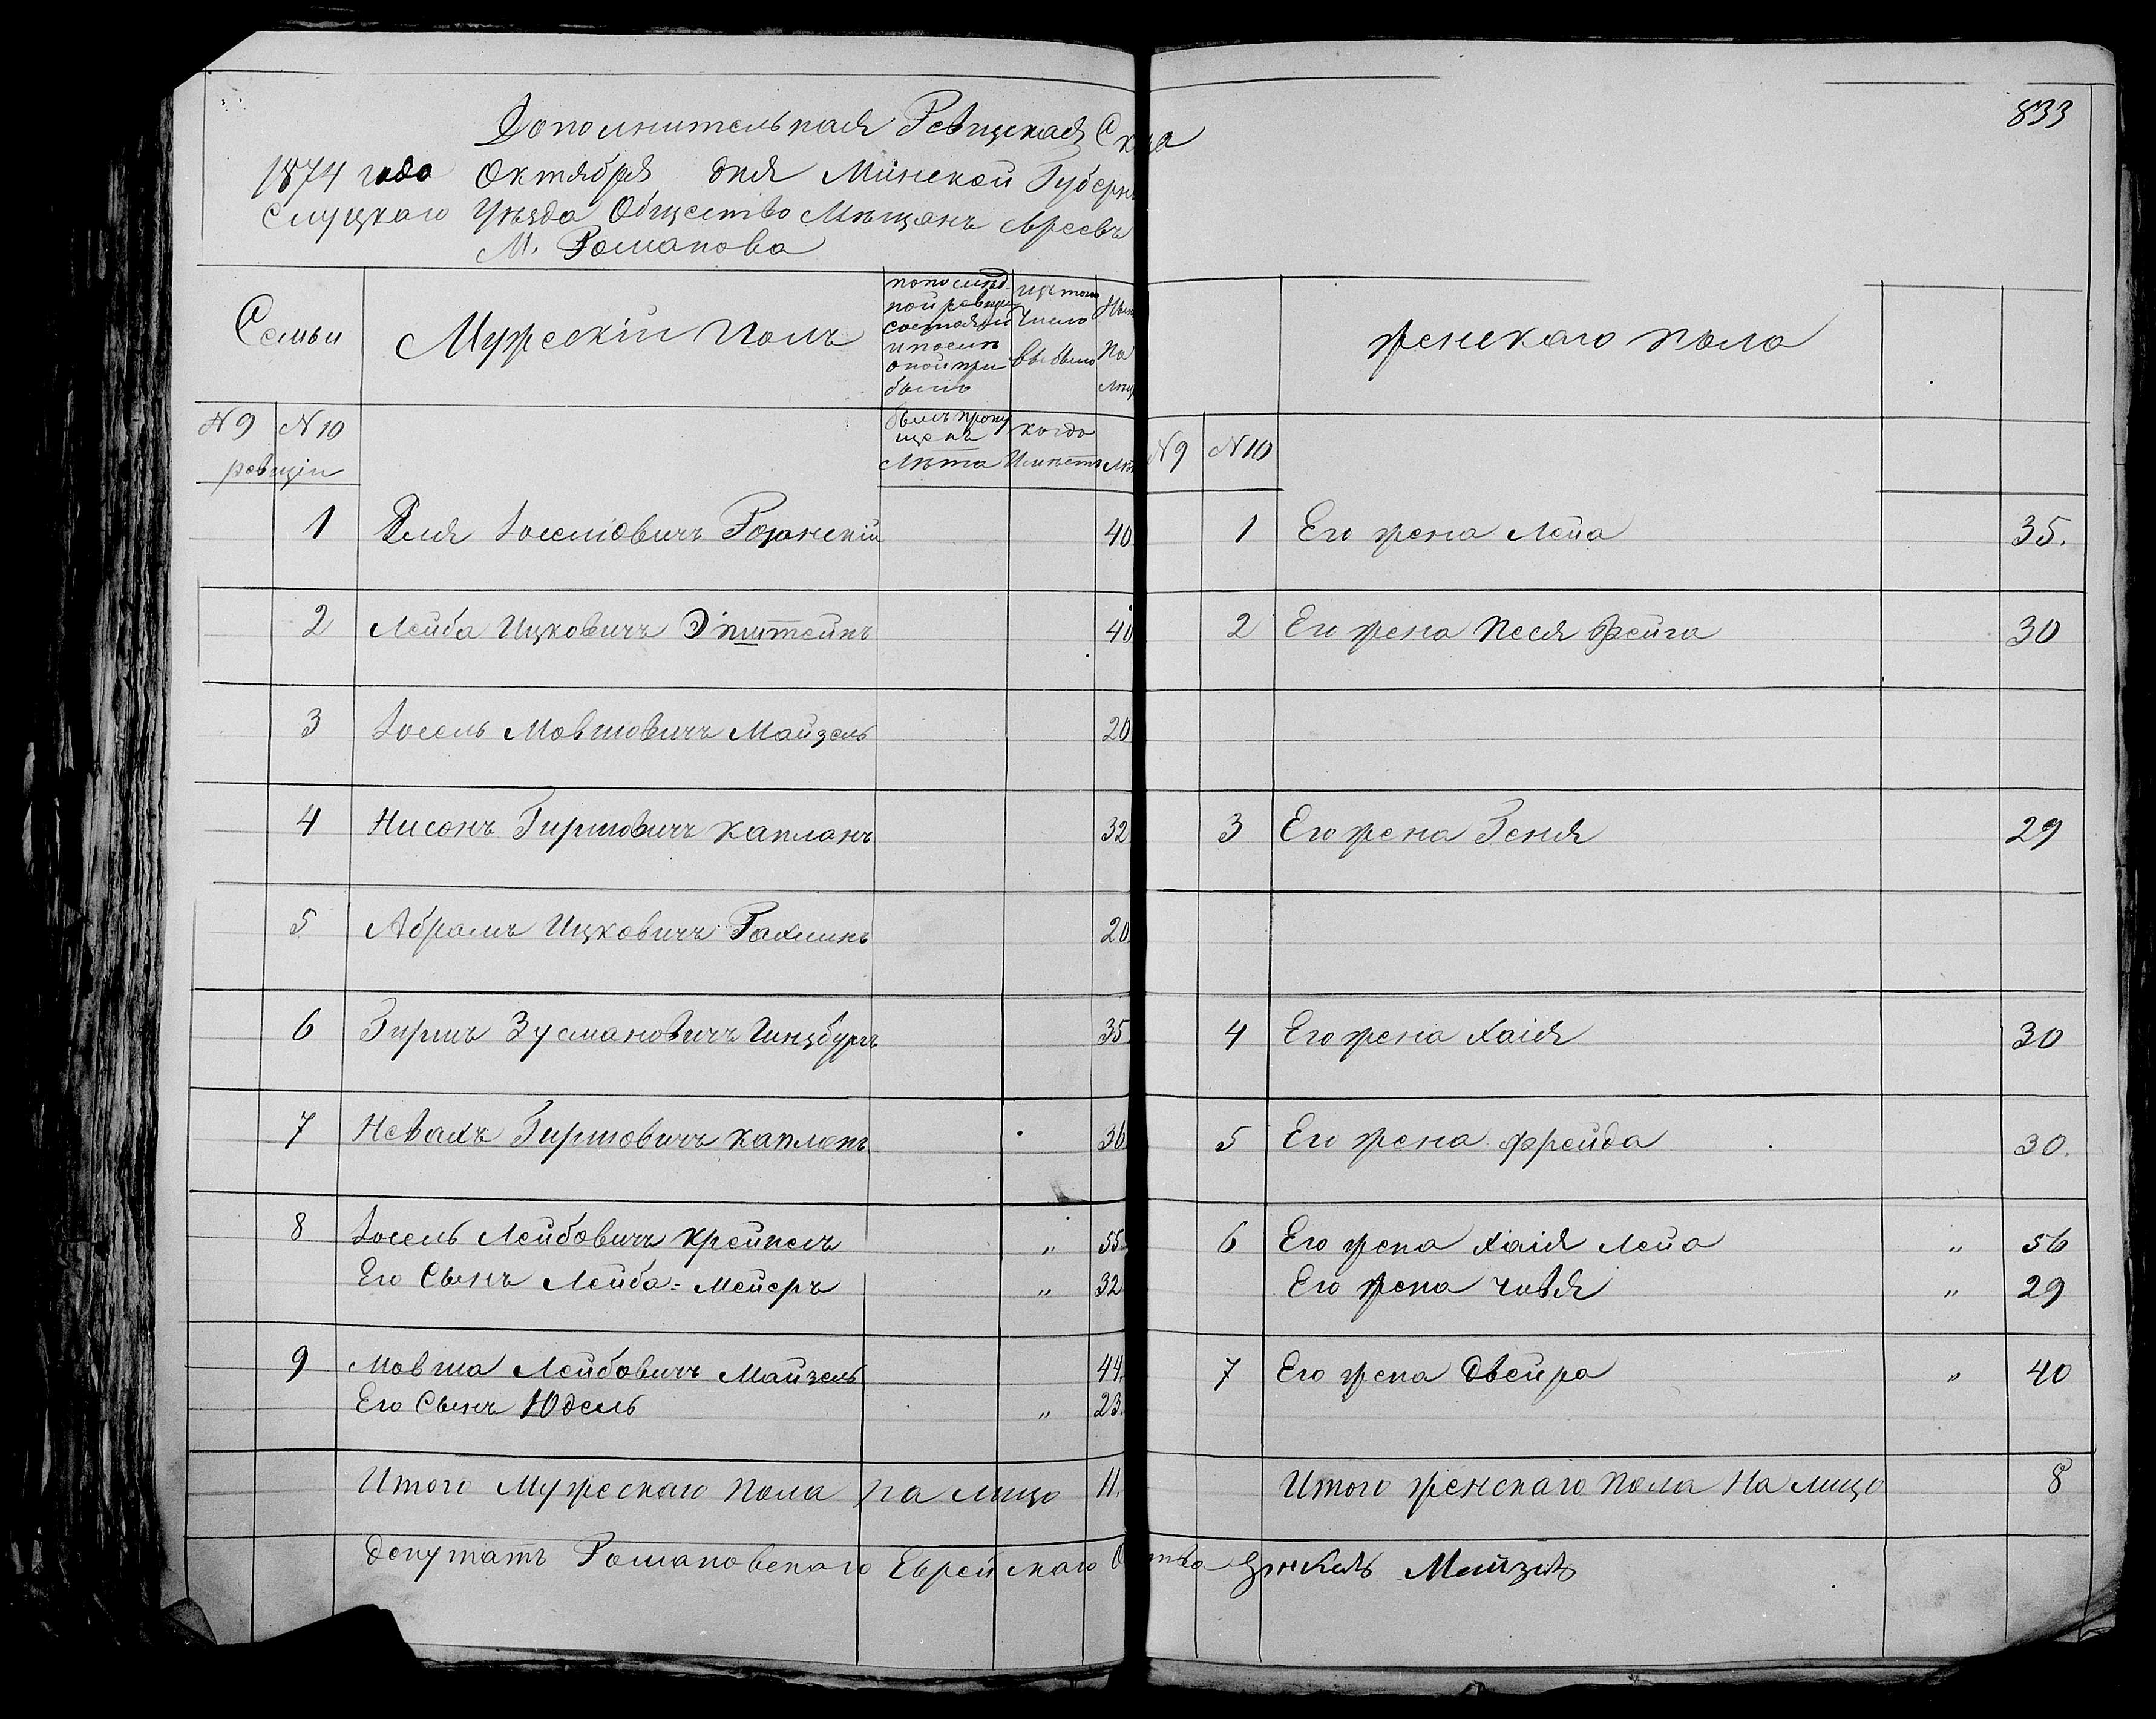 833
Дополнительная Ревизская Ска
1874 года Октября дня Минской Губерн
Слуцкаго Уѣзда Общество Мѣщанъ Евреевъ
М. Романова
Семьи
Мужескій Полъ
по послѣд
ной ревизіи
состояло
и послѣ
оной при
было
изъ того
Число
выбыло
Нынѣ
На
Лицо
женскаго пола
N 9 N 10
ревизіи
былъ пропу
щенъ
Лѣта
когда
Именно
Лѣ
N 9 N 10
1 Еля Іоселіовичъ Рожанскій 40 1 Его жена Лейа 35.
2 Лейба Ицковичъ Эпштейнъ 40 2 Его жена Песя Фейга 30
3 Іосель Мовшовичъ Майзель 20
4 Нисонъ Гиршовичъ Капланъ 32 3 Его жена Геня 29
5 Абрамъ Ицковичъ Рахлинъ 20
6 Гиршъ Зусмановичъ Гинзбургъ 35 4 Его жена Хаія 30
7 Невахъ Гиршовичъ Капланъ 36 5 Его жена Фрейда 30.
8 Іосель Лейбовичъ Крейнелъ " 55 6 Его жена Хаія Лейа " 56
Его Сынъ Лейба-Мейеръ " 32 Его жена Чивья " 29
9 Мовша Лейбовичъ Майзель 44. 7 Его жена Двейра " 40
Его Сынъ Юдель " 23.
Итого Мужескаго Пола на лицо 11. Итого женскаго Пола На лицо 8
Депутатъ Романовскаго Еврейскаго О тва Мейзель